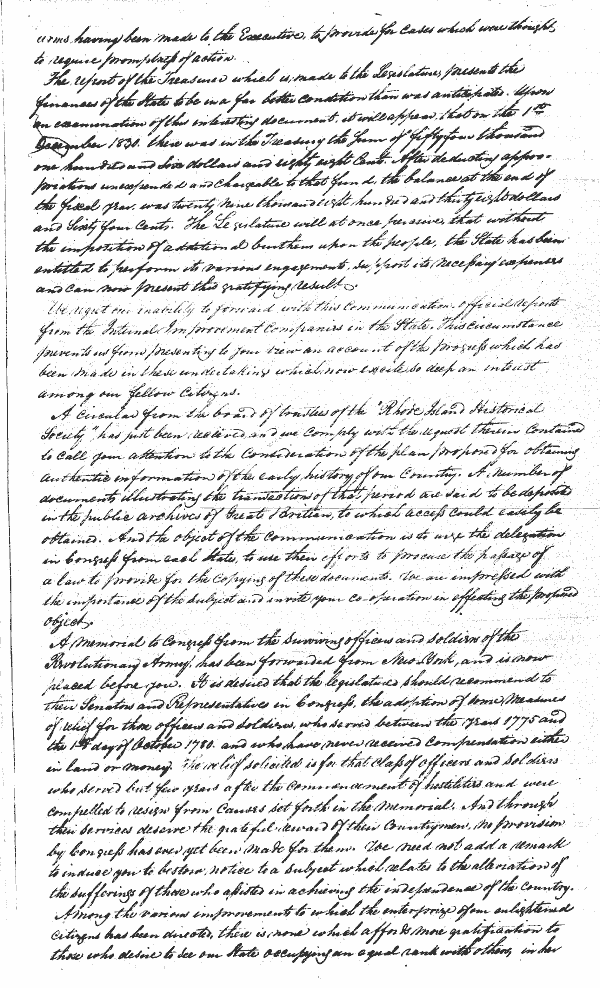 arms having been made to the Executive, to provide for cases which were thought,
to require promptness of action.
The report of the Treasurer which is, made to the Legislature, presents the
finances of the State to be in a far better condition than was anticipated. Upon
an examination of this interesting document, it will appear, that on the 1st
December 1830. there was in the Treasury the sum of fifty four thousand
one hundred and six dollars and eighty eight Cents. After deducting appro-
priations unexpended and chargeable to that fund, the balance at the end of
the fiscal year. was twenty nine thousand eight hundred and thirty eight dollars
and Sixty four Cents. The Legislature will at once perceive, that without
the imposition of additional burthens upon the people, the State has been
entitled to perform its various engagements. Support its necessary expenses
and can now present this gratifying result.
We regret our inability to forward with this Communication, official reports
from the Internal Improvement Companies in the State. This circumstance
prevents us from presenting to your view an account of the progress which has
been made in these undertakings which now excite so deep an interest
among our fellow Citizens.
A Circular from the board of trustees of the "Rhode Island Historical
Society," has just been received and we comply with the request therein contained
to call your attention to the Consideration of the plan, proposed for obtaining
authentic information of the early history of our Country. A number of
documents illustrating the transactions of that period are said to be deposited
in the public archives of Great Brittian, to which access could easily be
obtained. And the object of the communication is to urge the delegation
in Congress from each State, to use their efforts to procure the passage of
a law to provide for the copying of these documents. We are impressed with
the importance of the subject and invite your co-operation in effecting the proposed
object.
A Memorial to Congress from the surviving officers and soldiers of the
Revolutionary Army, has been forwarded from New York, and is now
placed before you. It is desired that the legislature should recommend to
their Senators and Representatives in Congress, the adoption of some Measures
of relief for those officers and soldiers, who served between the years 1775 and
the 1st day of October 1780. and who have never received compensation either
in land or money. The relief solicited is for that class of officers and soldiers
who served but few years after the commencement of hostilities and were
compelled to resign from causes set forth in the memorial. And through
their services deserve the grateful reward of their Countrymen, no provision
by Congress has ever yet been made for them. We need not add a remark
to induce you to bestow, notice to a subject which relates to the alleviation of
the sufferings of those who assisted in achieving the independence of the Country.
Among the various improvements to which the enterprize of our enlightened
citizens has been directed, there is none which affords more gratification to
those who desire to see our State occupying an equal rank with others, in her